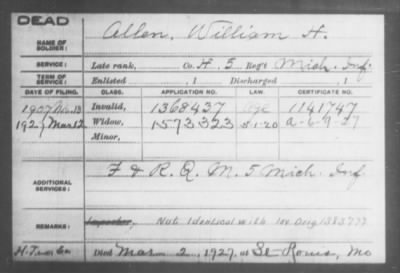 DEAD
NAME OF SOLDIER: Allen, William H.
SERVICE: Late rank, Co. H. 5 Reg't Mich. Inf.
TERM OF SERVICE: Enlisted , 1 Discharged , 1
DATE OF FILING. CLASS. APPLICATION NO. LAW. CERTIFICATE NO.
1907 Invalid, 1368437 Age 1141747
1927 Mar 12 Widow, 1573323 5-1-20 A-6-9-27
Minor,
ADDITIONAL SERVICES: F & R. Q. M. 5 Mich. Inf.
REMARKS: Importer, Not Identical with Inv Orig 1383777
Died Mar 2, 1927, at St Mo